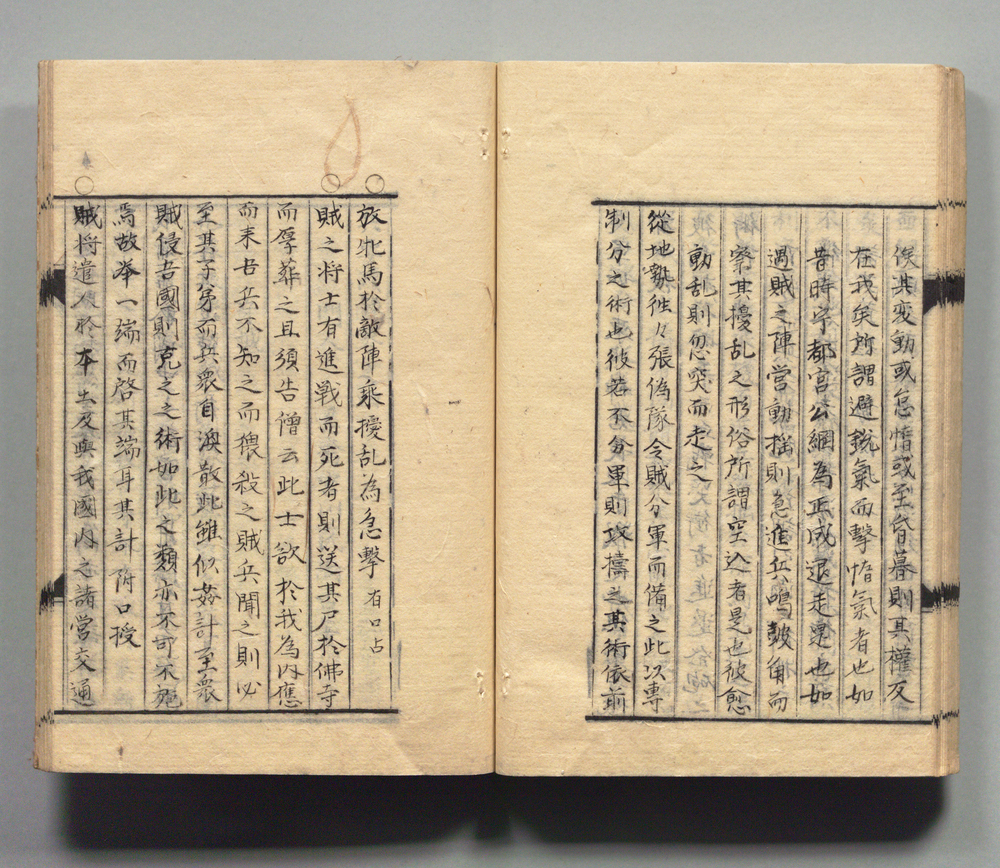 俟其変動或怠惰或至昏暮則其權反
在我矣所謂避銳氣而擊惰氣者也如
昔時宇都宮公綱為正成退走是也如
過賊之陣営動揺則急進兵鳴皷角而
察其擾乱之形俗所謂空込者是也彼愈
動乱則忽突而走之
從地勢徃々張偽隊令賊分軍而備之此以專
制分之術也彼若不分軍則攻擣之其術依前
放牝馬於敵陣乗擾乱為急擊 有口占
賊之将士有進戦而死者則送其尸於佛寺
而厚葬之且須告僧云此士欲於我為内應
而来吾兵不知之而猥殺之賊兵聞之則必
至其子弟而兵衆自渙散此雖似姦計至衆
賊侵吾國則克之之術如此之類亦不可不
焉故举一端而啓其端耳其計 附口授
賊将遣人於本土及與我國内之諸営交通